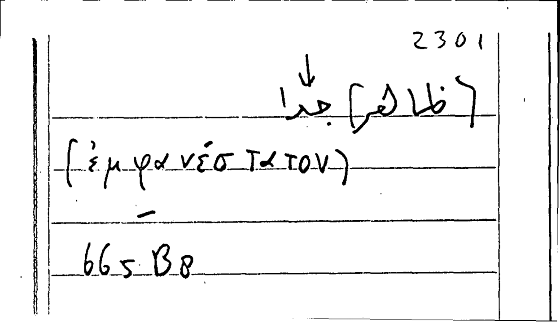 2301
(ظاهر) جدا
(ἐμφανέστατον)
665 B8